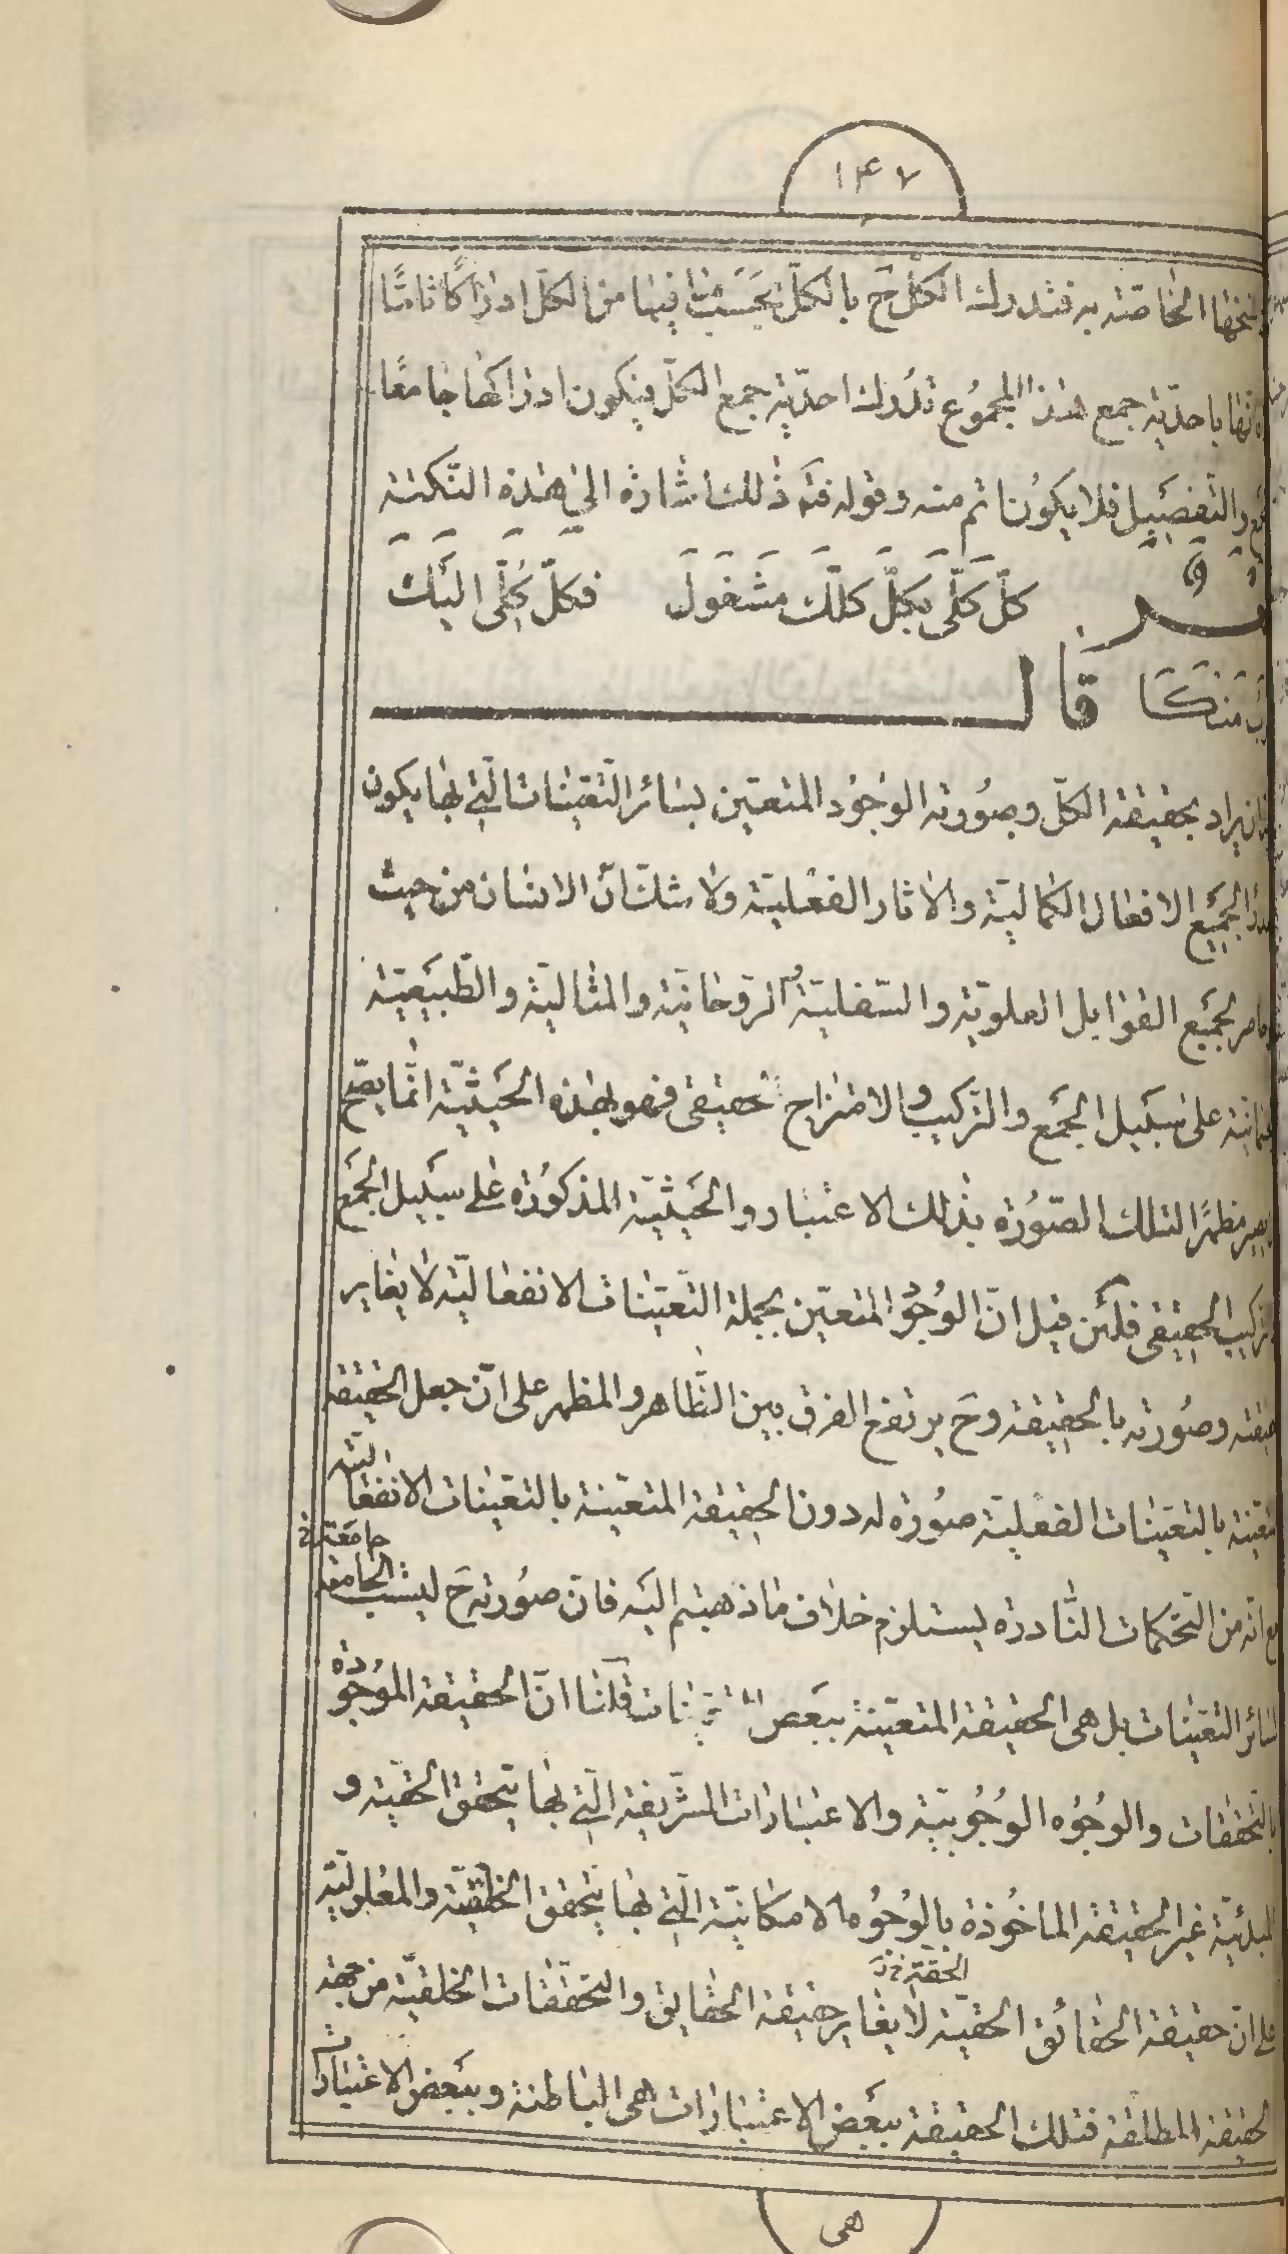 ١٤٧
الخاصّة به فتدرك الكلّ ح بالكلّ بحسب ما فيها من الكلّ ادراكًا تامًّا
باحدّية جمع هذا المجموع تدرك احدّية جمع الكلّ فيكون ادراكها جامعًا
والتفصيل فلا يكون اتم منه وقوله فثمّ ذلك اشارة الى هذه النّكتة
كلّ كلّى بكلّ كلّك مشغول فكلّ كلّى اليك
قال
يراد بحقيقة الكلّ وصورته الوجود المتعيّن بسائر التّعيّنات الّتى بها يكون
لجميع الافعال الكماليّة والاثار الفعليّة ولا شكّ انّ الانسان من حيث
لجميع القوابل العلويّة والسّفليّة والرّوحانيّة والمثاليّة والطّبيعيّة
على سبيل الجمع والتّركيب والامتزاج الحقيقى فهو بهذه الحيثيّة انّما يصّح
مظهرًا لتلك الصّورة بذلك الاعتبار والحيثيّة المذكورة على سبيل الجمع
الحقيقى فلئن قيل انّ الوجود المتعيّن بجملة التّعيّنات الانفعاليّة لا يغاير
وصورته بالحقيقة وح يرتفع الفرق بين الظّاهر والمظهر على انّ جعل الحقيقة
بالتعيّنات الفعليّة صورة له دون الحقيقة المتعيّنة بالتعيّنات الانفعاليّة
انّه من التّحكمات النّادرة يستلزم خلاف ما ذهبتم اليه فانّ صورته ح ليست الجامعة
جامعة خ
لسائر التعيّنات بل هى الحقيقة المتعيّنة ببعض التعيّنات قلنا انّ الحقيقة الموجودة
بالتّحققات والوجوه الوجوبيّة والاعتبارات الشّريفة الّتى بها يتحقق الحقيّة و
المبدئيّة غير الحقيقة الماخوذة بالوجوه الامكانيّة الّتى بها يتحقق الخلقيّة والمعلوليّة
الحقّة خ
على انّ حقيقة الحقائق الحقيّة لا يغاير حقيقة الحقايق والتحقّقات الخلقيّة من جهة
الحقيقة المطلقة فتلك الحقيقة ببعض الاعتبارات هى الباطنة وببعض الاعتبارات
هى